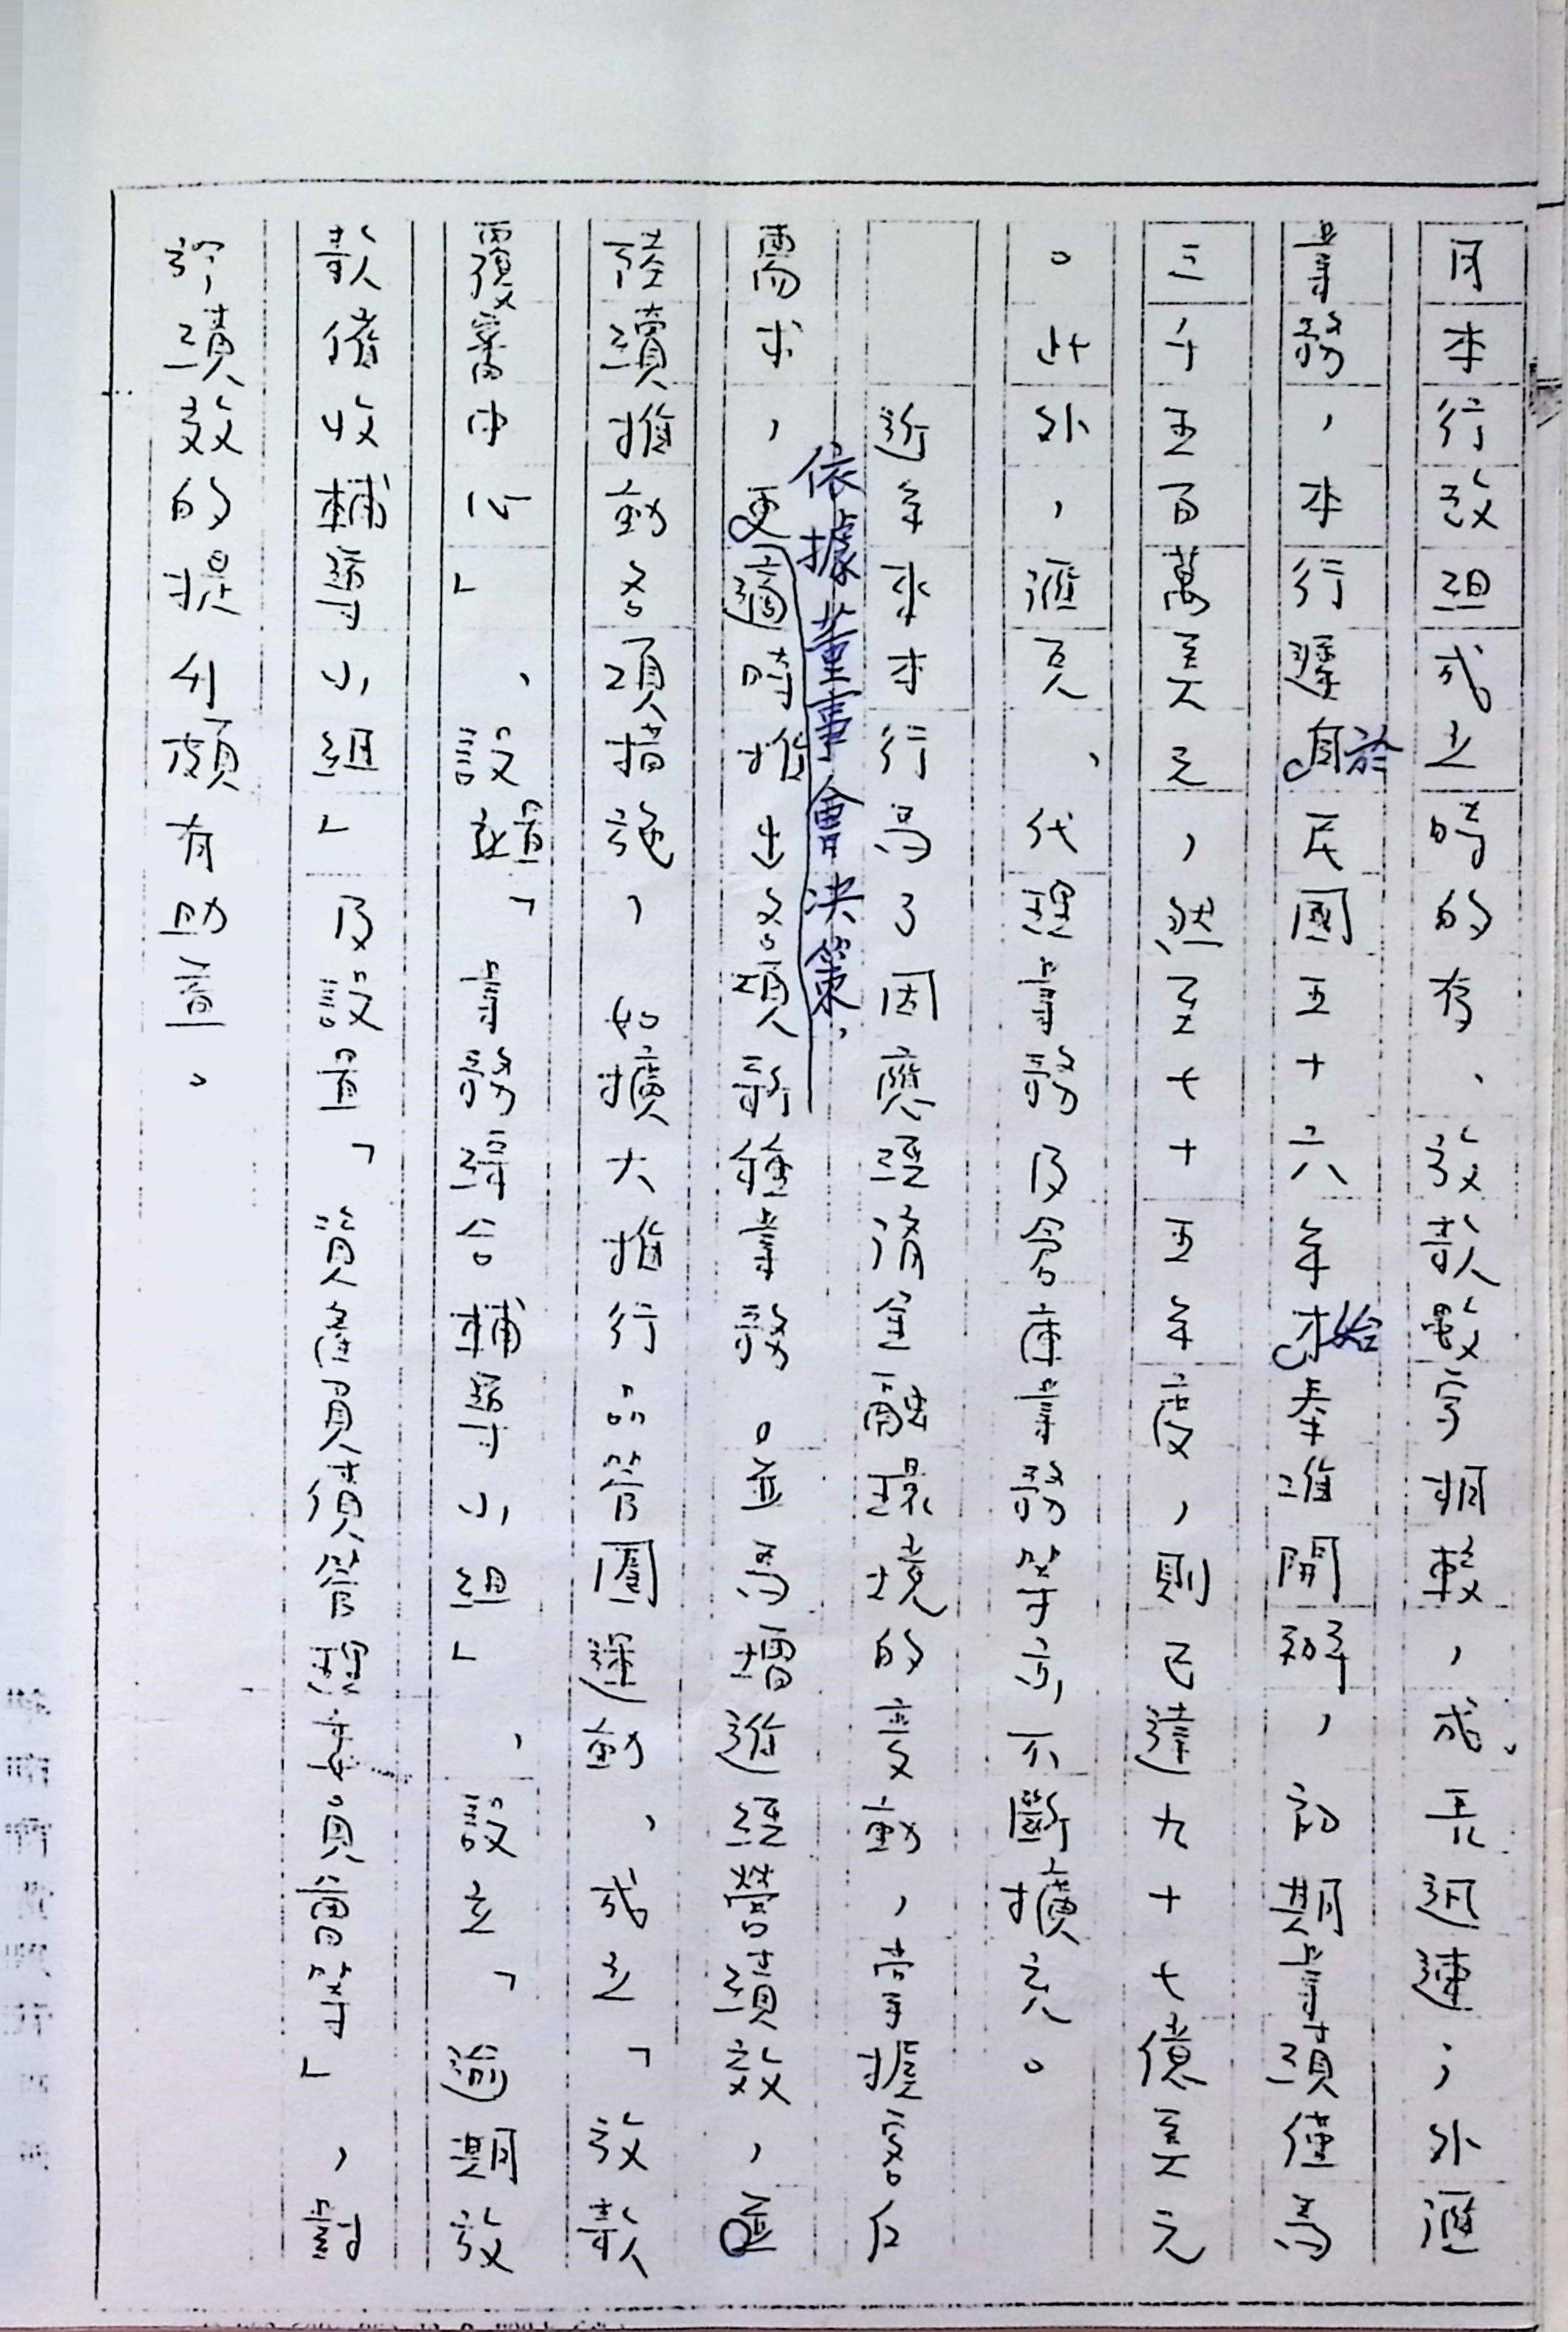 本行改組成立時的存、放款數字相較,成長迅速;外滙
業務,本行遲於民國五十六年始奉准開辦,初期業績僅爲
三千五百萬美元,然至七十五年度,則已達九十七億美元
。此外,滙兌、代理業務及倉庫業務等亦不斷擴充。
近年來本行爲了因應經濟金融環境的變動,掌握客戶
依據董事會決策,
需求,更適時推出新種業務。並爲增進經營績效,並
陸續推動各項措施,如擴大推行品管圈運動,成立「放款
覆審中心」、設置「業務聯合輔導小組」、設立「逾期放
款催收輔導小組」及設置「資產負債管理委員會等」,對
於績效的提升頗有助益。